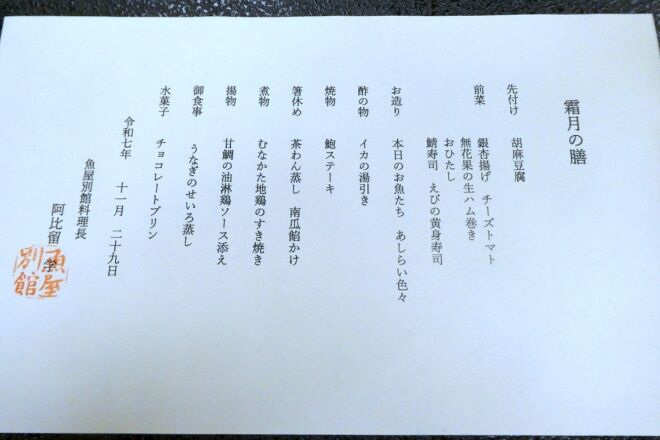 霜月の膳
先付け　胡麻豆腐
前菜　銀杏揚げ　チーズトマト
無花果の生ハム巻き
おひたし
鯖寿司　えびの黄身寿司
お造り　本日のお魚たち　あしらい色々
酢の物　イカの湯引き
焼物　鮑ステーキ
箸休め　茶わん蒸し　南瓜餡かけ
煮物　むなかた地鶏のすき焼き
揚物　甘鯛の油淋鶏ソース添え
御食事　うなぎのせいろ蒸し
水菓子　チョコレートプリン
令和七年　十一月　二十九日
魚屋別館料理長
阿比留　学
魚屋
別館